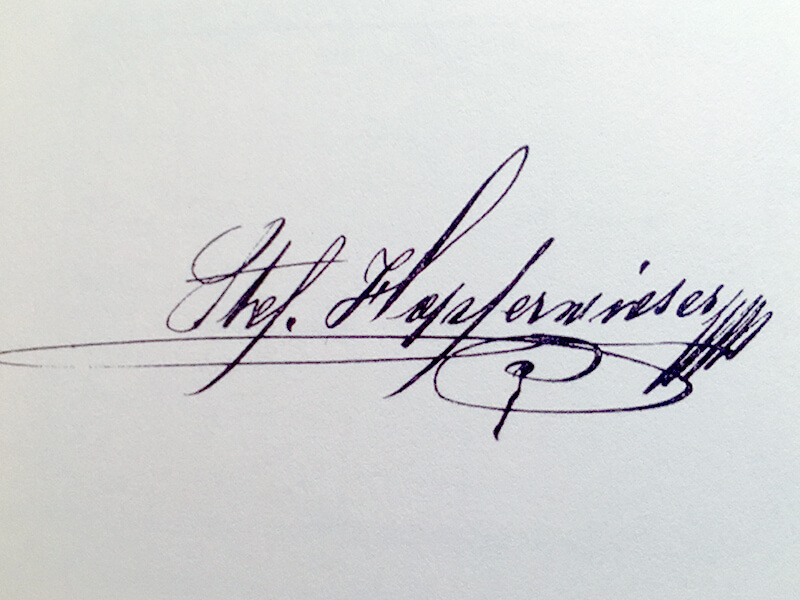 Stef. Hopferwieser